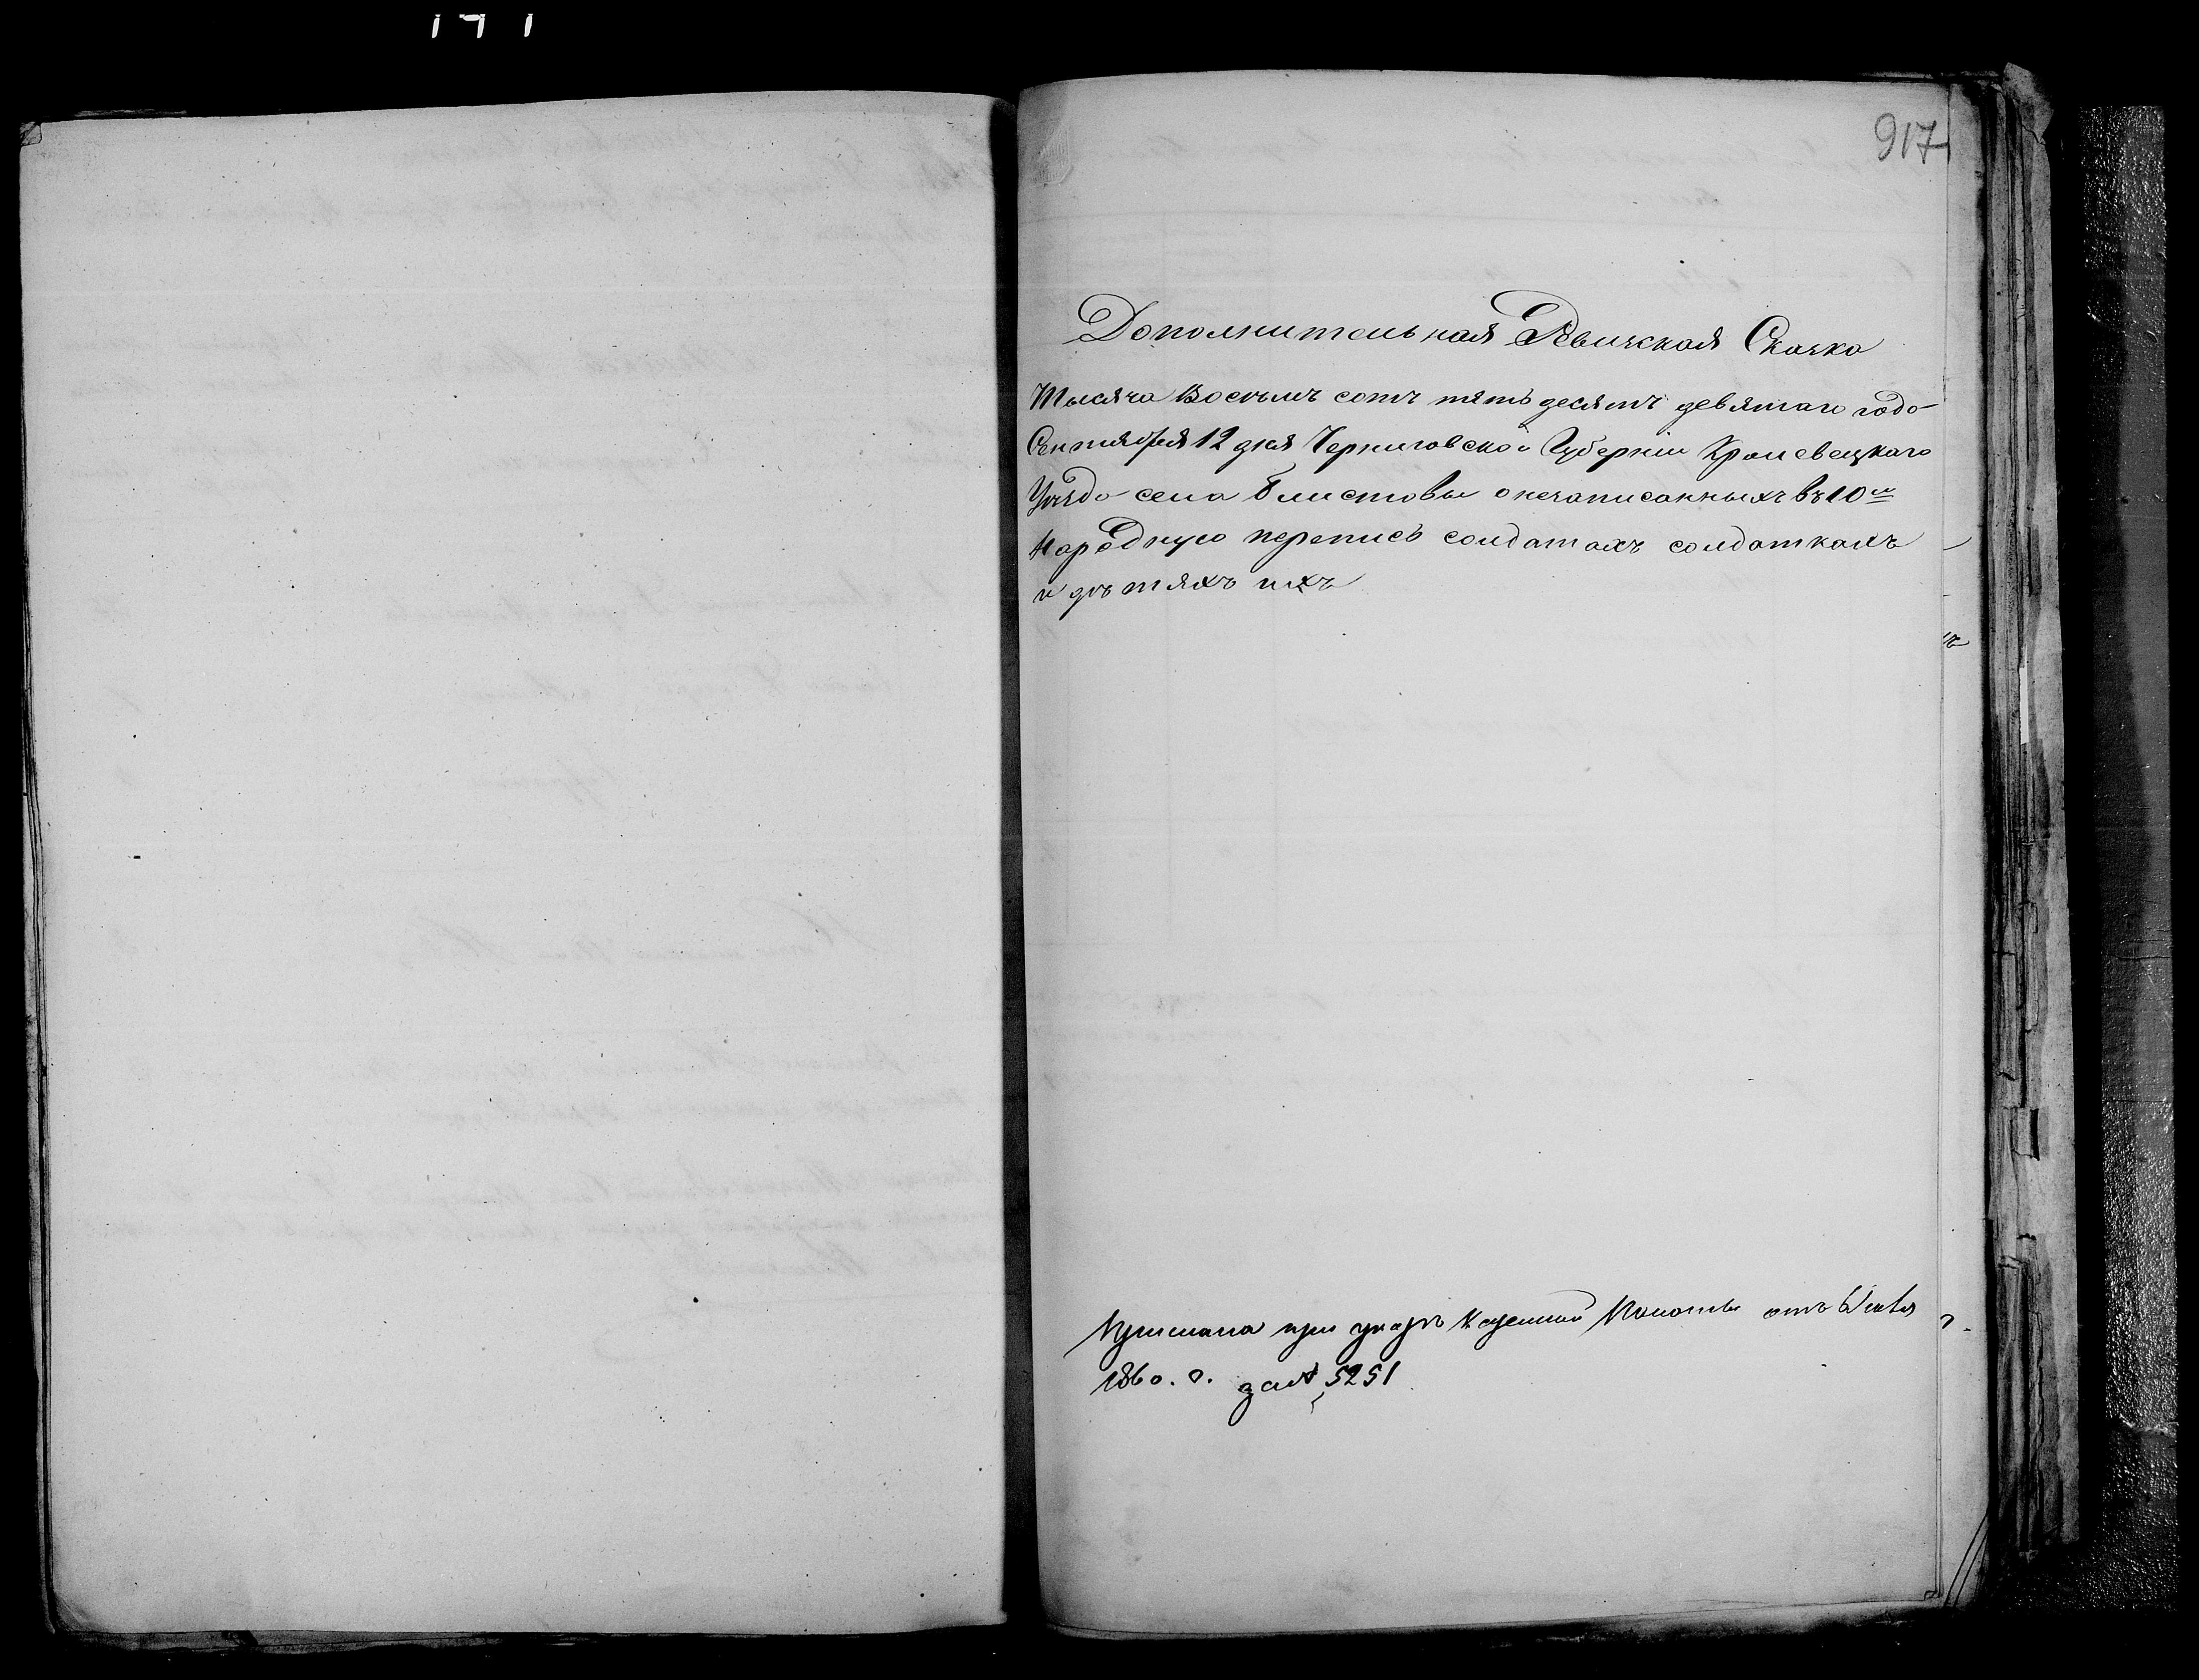 917
Дополнительная Ревизская Сказка
Тысяча Восемъ сотъ пять десятъ девятаго года
Сентября 12 дня Черниговской Губернiи Кролевецкаго
Уѣзда села Блистовы онезаписанныхъ въ 10ю
Народную перепись солдатахъ солдаткахъ
и дѣтяхъ ихъ
при указѣ Казенной Палаты отъ
1860. г. за № 5251